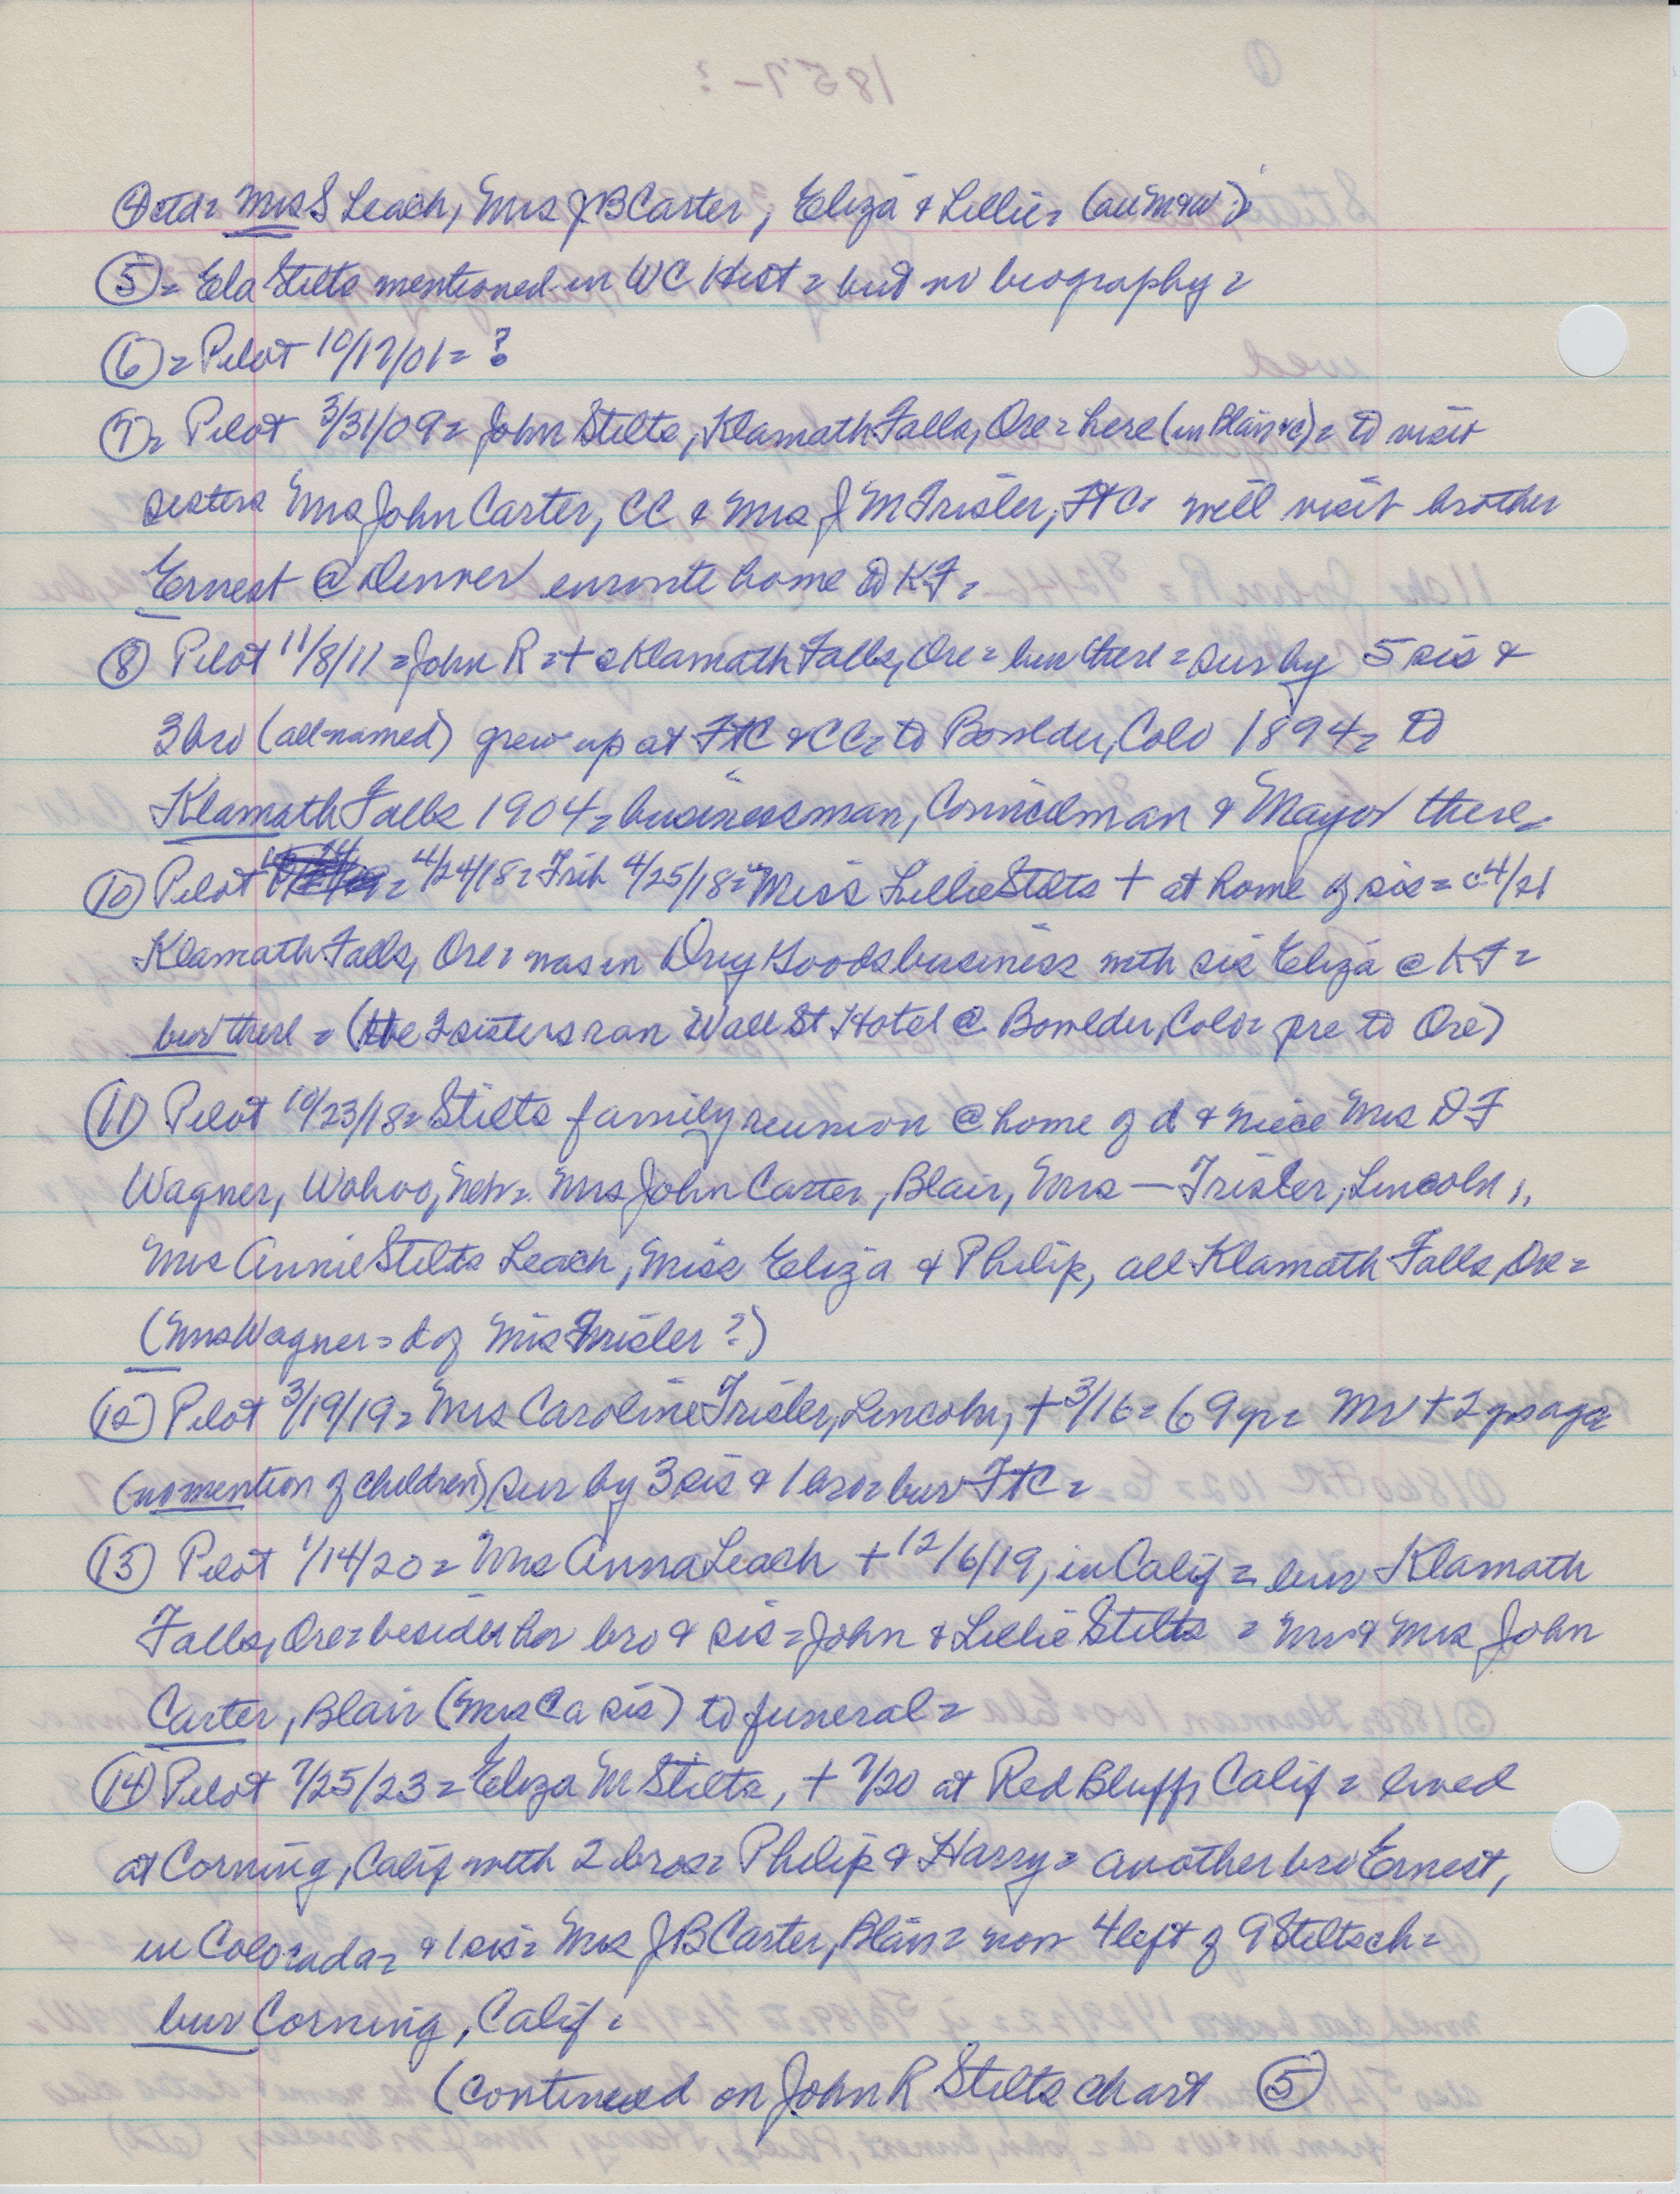 ④ctd= Mrs S Leach, Mrs J B Carter, Eliza & Lillie= (all M&W?)
⑤= Ela Stilts mentioned in WC Hist= but no biography=
⑥= Pilot 10/17/01= ?
⑦= Pilot 3/31/09= John Stilts, Klamath Falls, Ore= here (in Blair vc)= to visit
sisters Mrs John Carter, CC & Mrs J M Trisler, FtC= will visit brother
Ernest @ Denver enroute home to KF=
⑧ Pilot 11/8/11= John R= + @ Klamath Falls, Ore= bur there= sur by 5 sis &
3 bro (all named) grew up at FtC & CC= to Boulder, Colo 1894= to
Klamath Falls 1904= businessman, Councilman & Mayor there=
⑩ Pilot 4/24/18= Trib 4/25/18= Miss Lillie Stilts + at home of sis= c 4/21
Klamath Falls, Ore= was in Dry Goods business with sis Eliza @ KF=
bur there= (the 2 sisters ran Wall St Hotel @ Boulder, Colo= pre to Ore)
⑪ Pilot 10/23/18= Stilts family reunion @ home of d & niece Mrs D F
Wagner, Wahoo, Neb= Mrs John Carter, Blair, Mrs — Trisler, Lincoln,,
Mrs Annie Stilts Leach, Miss Eliza & Philip, all Klamath Falls, Ore=
(Mrs Wagner= d of Mrs Trisler?)
⑫ Pilot 3/19/19= Mrs Caroline Trisler, Lincoln, + 3/16= 69 yr= Mr + 2 yrs ago=
(no mention of children) sur by 3 sis & 1 bro= bur FtC=
⑬ Pilot 1/14/20= Mrs Anna Leach + 12/6/19, in Calif= bur Klamath
Falls, Ore= beside her bro & sis= John & Lillie Stilts= Mr & Mrs John
Carter, Blair (Mrs C a sis) to funeral=
⑭ Pilot 7/25/23= Eliza M Stilts, + 7/20 at Red Bluff, Calif= lived
at Corning, Calif with 2 bros= Philip & Harry= another bro Ernest,
in Colorado= & 1 sis= Mrs J B Carter, Blair= now 4 left of 9 Stilts ch=
bur Corning, Calif=
(continued on John R Stilts chart ⑤